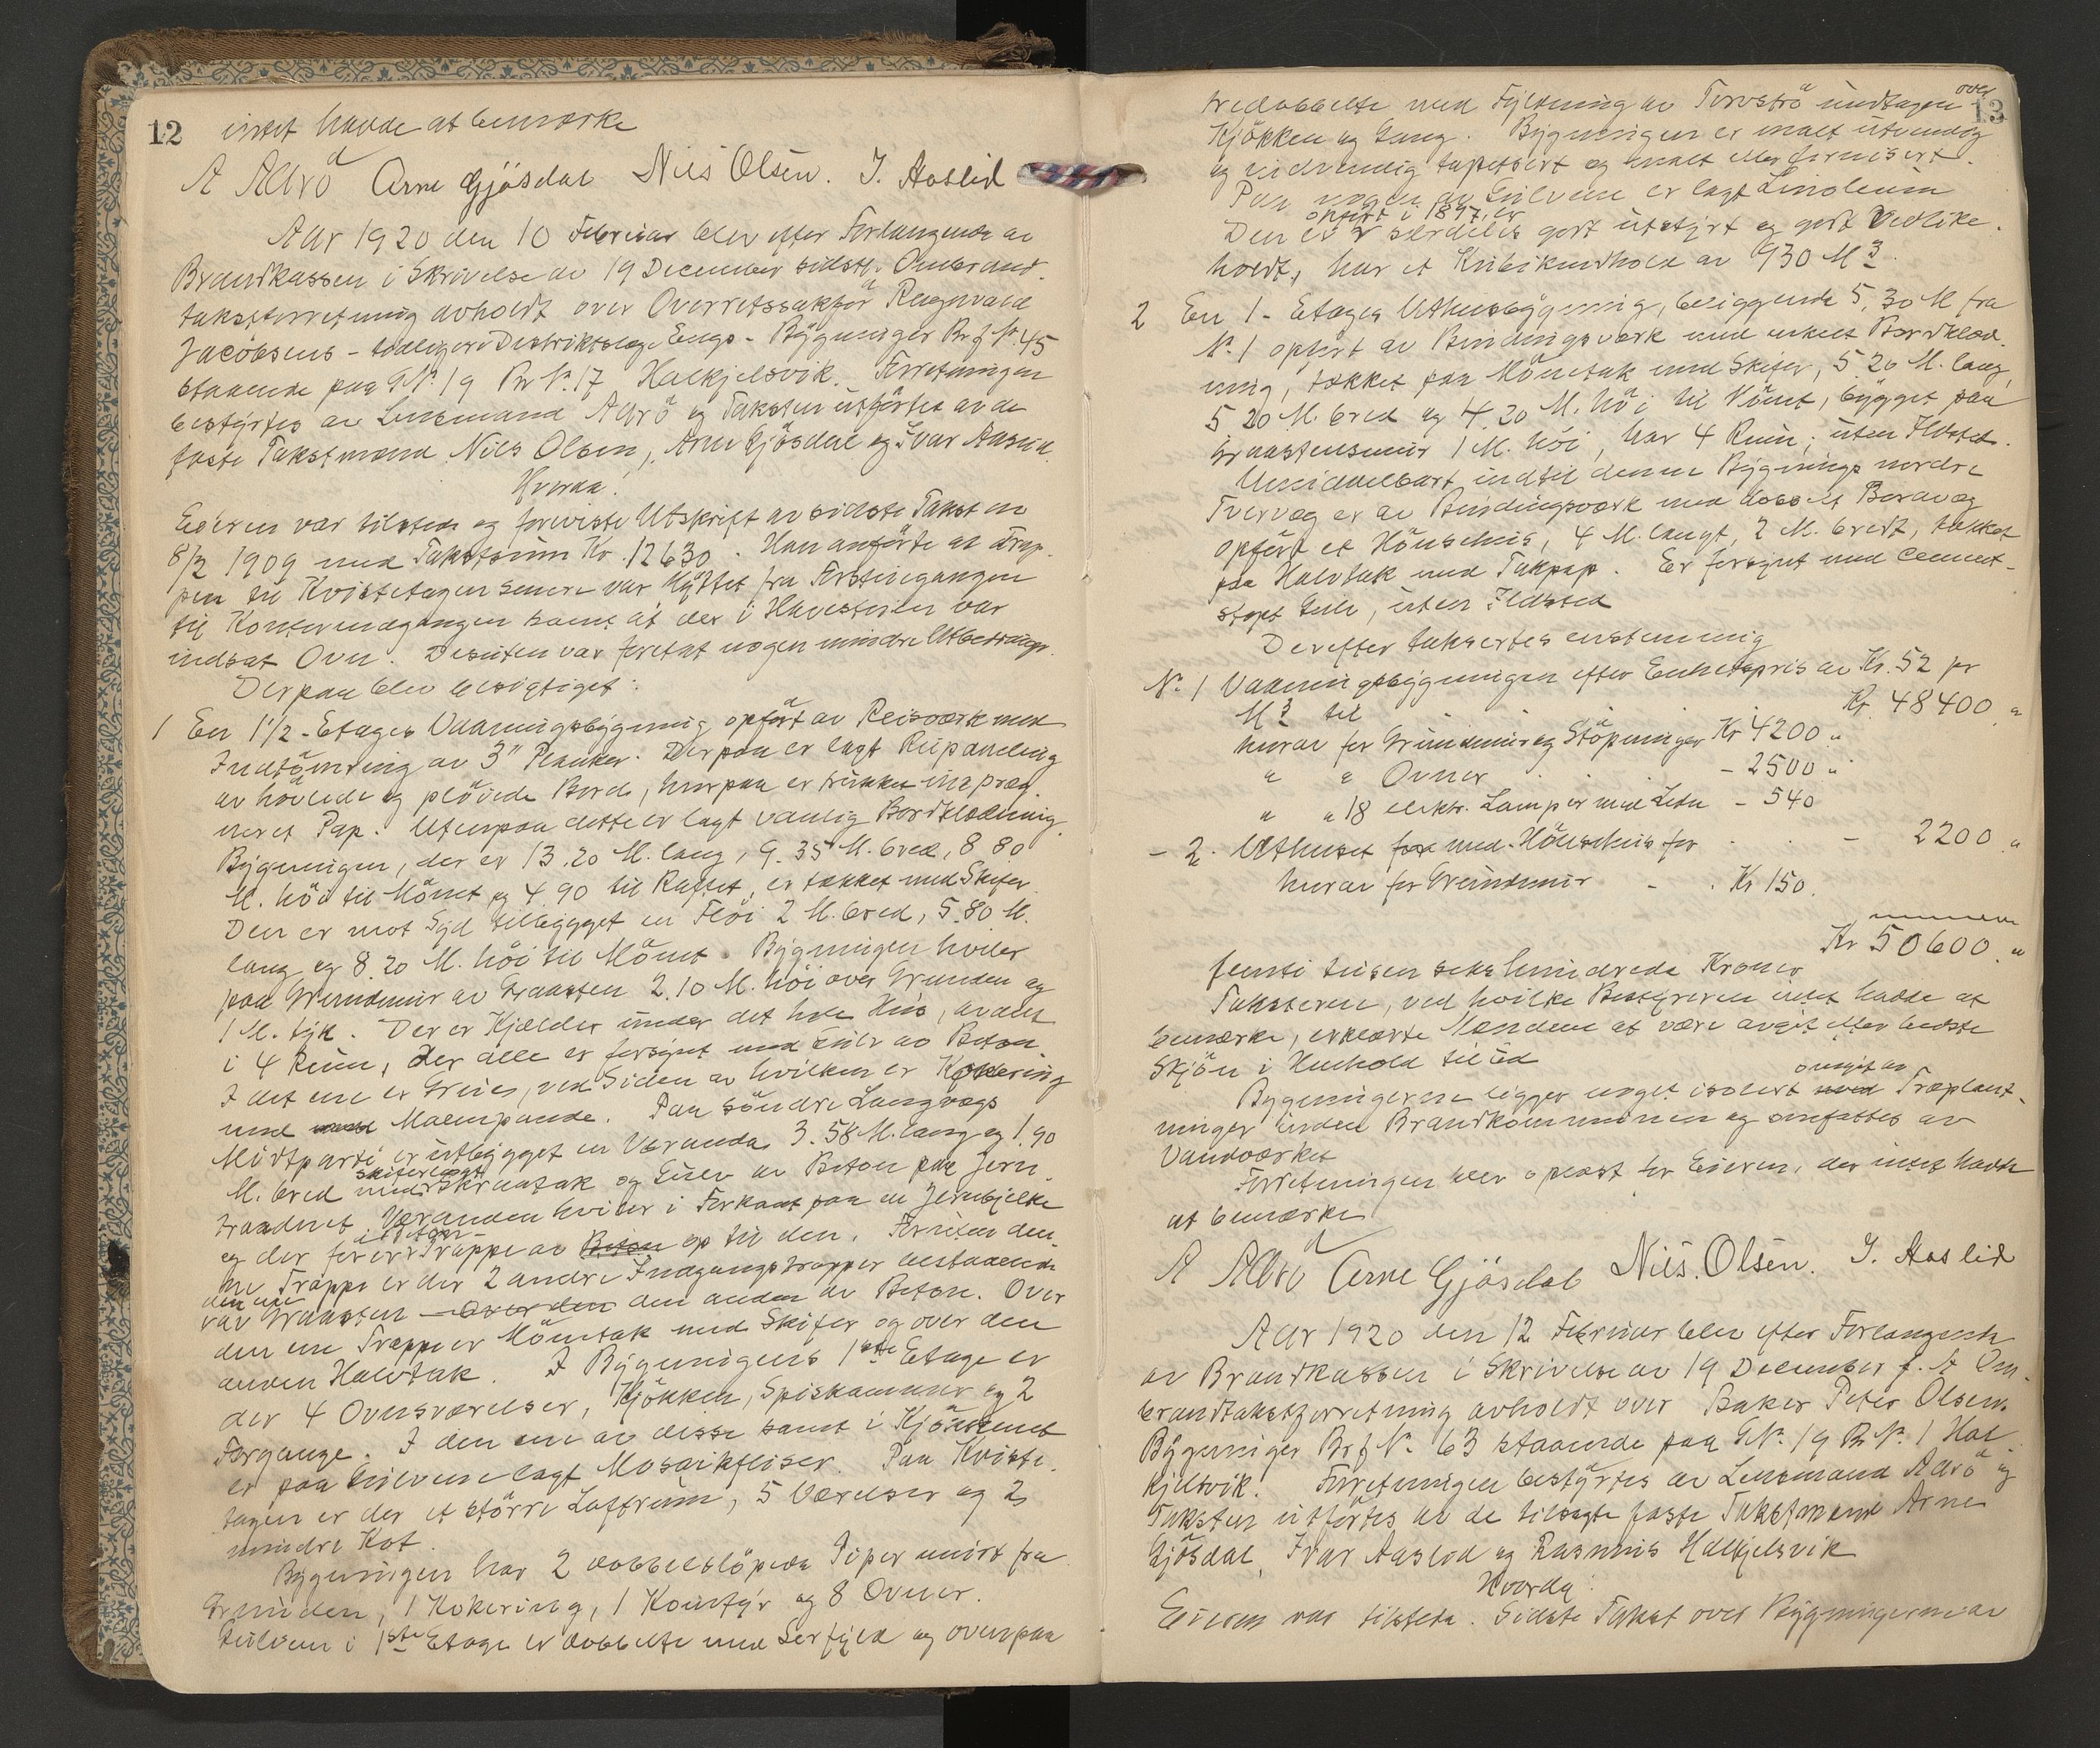 12 intet havde at bemærke
A Aarø Arne Gjösdal Nils Olsen. I. Aaslid
Aar 1920 den 10 Februar blev efter Forlangende av
Brandkassen i Skrivelse av 19 December sidstl. Ombrand-
takstforretning avholdt over Overretssakför Ragnvald
Jacobsens - tidligere Distriktslæge Engs - Bygninger Br.f.No. 45
staaende paa GNo. 19 BrNo. 17 Halkjelsvik. Forretningen
bestyrtes av Lensmand Aarö og Taksten utförtes av de
faste Takstmænd Nils Olsen, Arne Gjösdal og Ivar Aaslid.
Hvorda!
Eieren var tilstede og foreviste Utskrift av sidste Takst av
8/2 1909 med Takstsum Kr. 12630. Han anförte at Trap-
pen til Kvistetagen senere var flyttet fra Forstuegangen
til Kontorindgangen samt at der i Havestuen var
indsat Ovn. Desuten var foretat nogen mindre Utbedringer.
Derpaa blev besigtiget:
1 En 1½-Etages Vaaningsbygning opfört av Reisverk med
Indtömring av 3" Planker. Derpaa er lagt Rupaneling
av hövlede og plöiede Bord, hvorpaa er trukket impræg-
neret Pap. Utenpaa dette er lagt vanlig Bordklædning.
Bygningen, der er 13.20 M. lang, 9.35 M. bred, 8 80
M. höi til Mönet og 4.90 til Raftet, er tækket med Skifer.
Den er mot Syd tilbygget en Flöi 2 M. bred, 5.80 M.
lang og 8.20 M. höi til Mönet. Bygningen hviler
paa Grundmur av Graasten 2.10 M. höi over Grunden og
1 M. tyk. Der er Kjælder under det hele Hus, avdelt
i 4 Rum, der alle er forsynt med Gulv av Beton.
I det ene er Grue, ved Siden av hvilken er Kokering
med Malmpande. Paa söndre Langvægs
Midtparti er utbygget en Veranda 3.58 M. lang og 1.90
M. bred med skiferlagt Skraatak og Gulv av Beton paa Jern-
traadnet. Verandaen hviler i Forkant paa en Jernbjelke
og der förer Beton- Trappe av Beton op til den. Foruten den-
ne Trappe er der 2 andre Indgangstrapper bestaaende
den ene av Graasten Over den den anden av Beton. Over
den ene Trappe er Mönetak med Skifer og over den
anden Halvtak. I Bygningens 1ste Etage er
der 4 Ovnsværelser, Kjökken, Spiskammer og 2
Forgange. I den ene av disse samt i Kjökkenet
er paa Gulvene lagt Mosaikfliser. Paa Kviste-
tagen er der et större Loftrum, 5 Værelser og 2
mindre Kot.
Bygningen har 2 dobbeltlöpede Piper muret fra
Grunden, 1 Kokering, 1 Komfyr og 8 Ovner.
Gulvene i 1ste Etage er dobbelte med Lerfyld og ovenpaa
13
tredobbelte med Fyldning av Torvströ undtagen over
Kjökken og Gang. Bygningen er malt utvendig
og indvendig tapetsert og malt eller fernisert.
Paa nogen av Gulvene er lagt Linoleum
Den er opfört i 1897, er særdeles godt utstyrt og godt vedlike-
holdt, har et Kubikindhold av 930 M3.
2 En 1-Etages Uthusbygning, beliggende 5.30 M fra
No. 1 opfört av Bindingsverk med enkelt Bordklæd-
ning, tækket paa Mönetak med Skifer, 5 20 M. lang,
5 20 M. bred og 4.20 M. höi til Mönet, bygget paa
Graastensmur 1 M. höi, har 4 Rum, uten Ildsted.
Umiddelbart indtil denne Bygnings nordre
Tvervæg er av Bindingsverk med dobbelt Bordvæg
opfört et Hönsehus, 4 M. langt, 2 M. bredt, tækket
paa Halvtak med Takpap. Er forsynt med Cement-
stöpt Gulv, uten Ildsted
Derefter taksertes enstemmig
No. 1 Vaaningsbygningen efter Enhetspris av Kr. 52 pr
M3 til Kr 48400 "
hvorav for Grundmur og Stöpninger Kr 4200 "
" " Ovner - 2500 "
" " 18 elektr. Lamper med Ledn - 540
- 2. Uthuset for med Hönsehus for - 2200 "
hvorav for Grundmur Kr 150.
Kr 50600 "
femti tusen seks hundrede Kroner
Taksterne, ved hvilke Bestyreren intet hadde at
bemærke, erklærte Mændene at være avgit efter bedste
Skjön i Henhold til Ed
Bygningerne ligger noget isolert omgit av Træplant-
ninger inden Brandkommunen og omfattes av
Vandverket
Forretningen blev oplæst for Eieren, der intet havde
at bemærke
A Aarø Arne Gjösdal Nils. Olsen. I. Aaslid
Aar 1920 den 12 Februar blev efter Forlangende
av Brandkassen i Skrivelse av 19 December f. A Om-
brandtakstforretning avholdt over Baker Peter Olsens
Bygninger BrfNo. 63 staaende paa GNo. 19 BrNo. 1 Hal-
kjelsvik. Forretningen bestyrtes av Lensmand Aarö og
Taksten utförtes av de tilsagte faste Takstmænd Arne
Gjösdal, Ivar Aaslid og Rasmus Halkjelsvik
Hvorda:
Eieren var tilstede. Sidste Takst over Bygningerne av